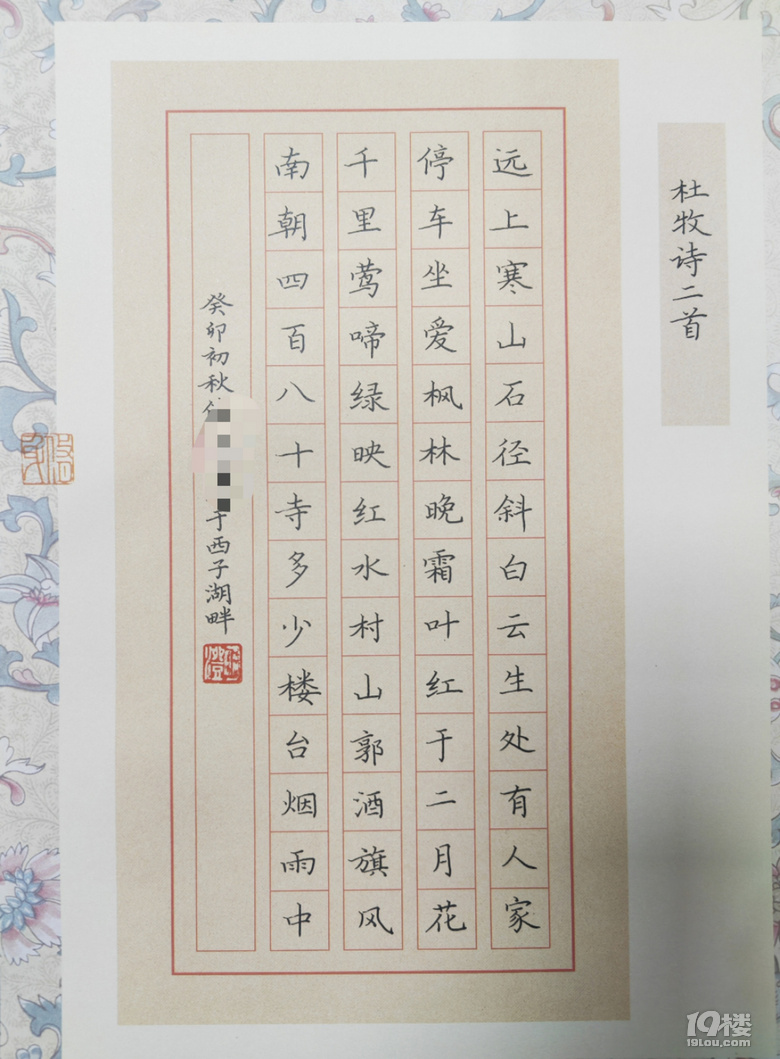 杜牧诗二首
远上寒山石径斜白云生处有人家
停车坐爱枫林晚霜叶红于二月花
千里莺啼绿映红水村山郭酒旗风
南朝四百八十寺多少楼台烟雨中
癸卯初秋
于西子湖畔
19楼
19lou.com